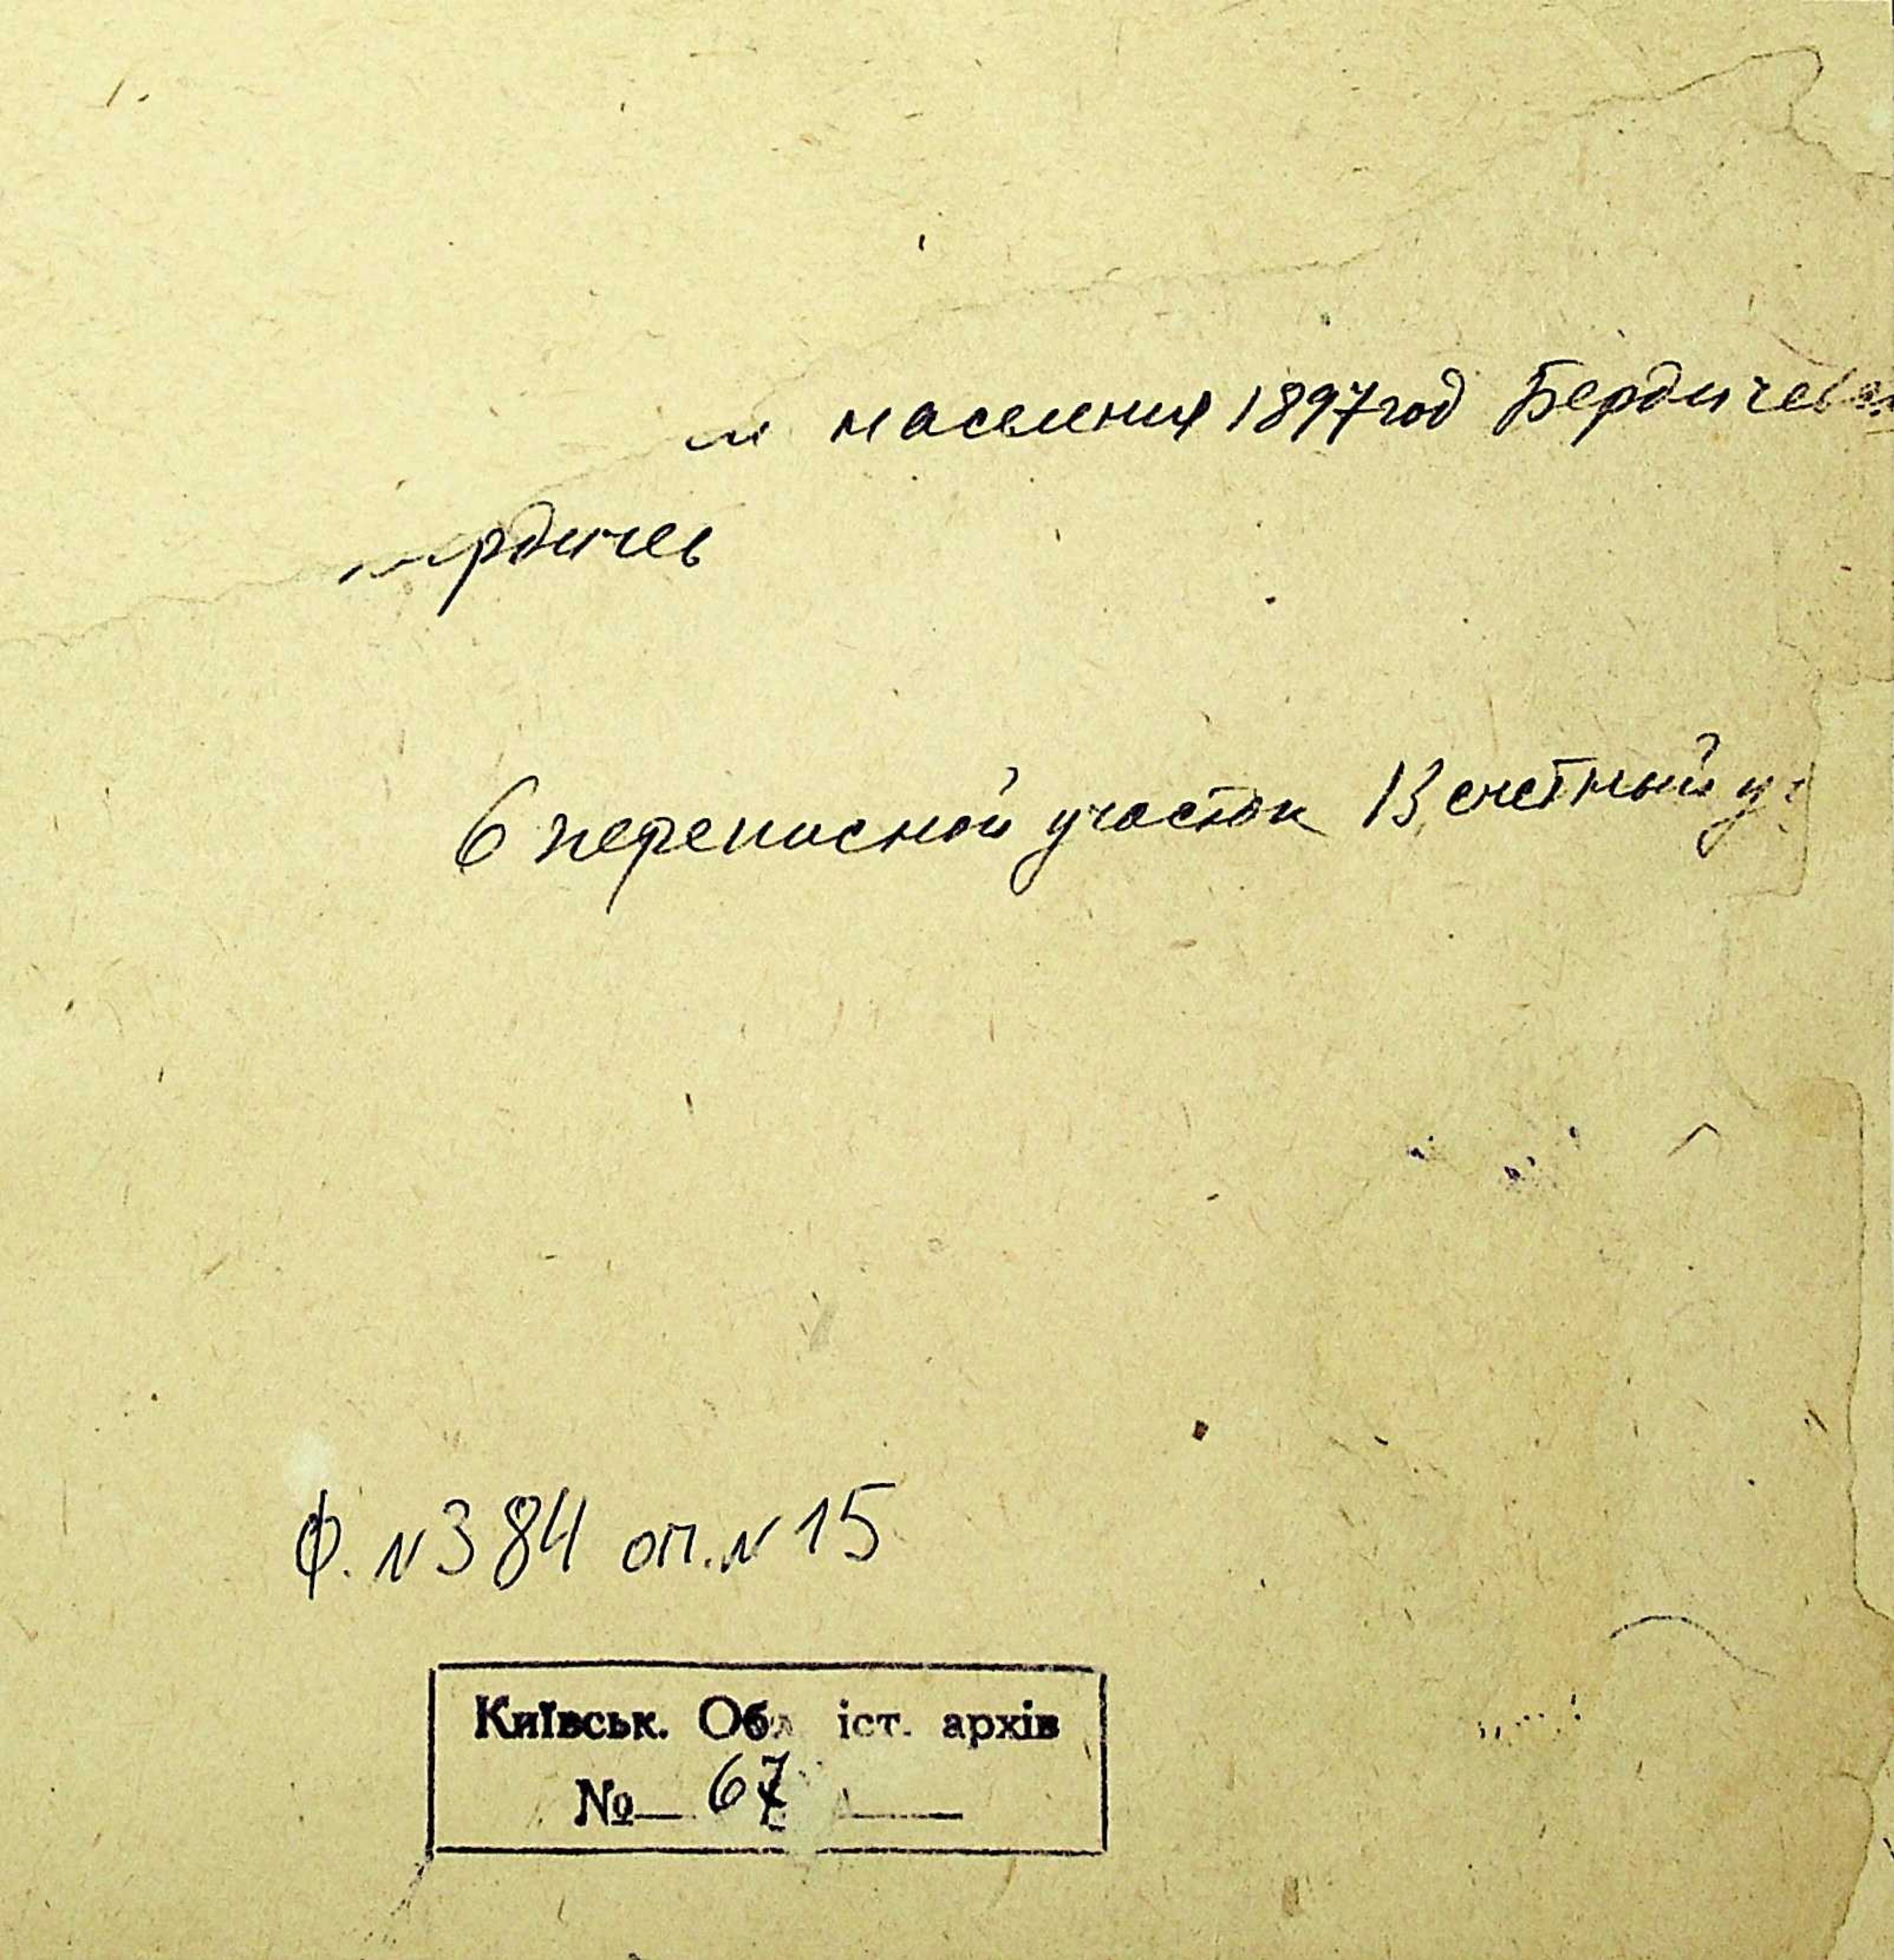 населения 1897 год Бердичевск
рдичев
6 переписной участок 13 счетный у
Ф. N 384 оп. N 15
Київськ. Обл іст. архів
№ 67